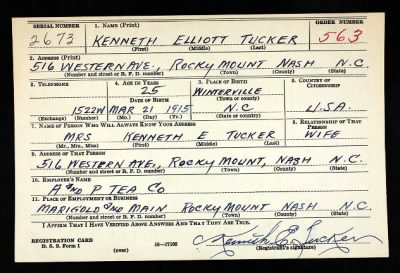 SERIAL NUMBER 1. NAME (Print) ORDER NUMBER
2673 KENNETH ELLIOTT TUCKER 563
(First) (Middle) (Last)
2. ADDRESS (Print)
516 WESTERN AVE., ROCKY MOUNT NASH N.C.
(Number and street or R. F. D. number) (Town) (County) (State)
3. TELEPHONE 4. AGE IN YEARS 5. PLACE OF BIRTH 6. COUNTRY OF CITIZENSHIP
25 WINTERVILLE
DATE OF BIRTH (Town or county)
1522W MAR 21 1915 N.C. U.S.A.
(Exchange) (Number) (Mo.) (Day) (Yr.) (State or country)
7. NAME OF PERSON WHO WILL ALWAYS KNOW YOUR ADDRESS 8. RELATIONSHIP OF THAT PERSON
MRS KENNETH E TUCKER WIFE
(Mr., Mrs., Miss) (First) (Middle) (Last)
9. ADDRESS OF THAT PERSON
516 WESTERN AVE., ROCKY MOUNT, NASH N.C.
(Number and street or R. F. D. number) (Town) (County) (State)
10. EMPLOYER'S NAME
A AND P TEA CO
11. PLACE OF EMPLOYMENT OR BUSINESS
MARIGOLD AND MAIN ROCKY MOUNT NASH N.C.
(Number and street or R. F. D. number) (Town) (County) (State)
I AFFIRM THAT I HAVE VERIFIED ABOVE ANSWERS AND THAT THEY ARE TRUE.
REGISTRATION CARD
D. S. S. Form 1 (over) 16—17105 Kenneth E. Tucker
(Registrant's signature)